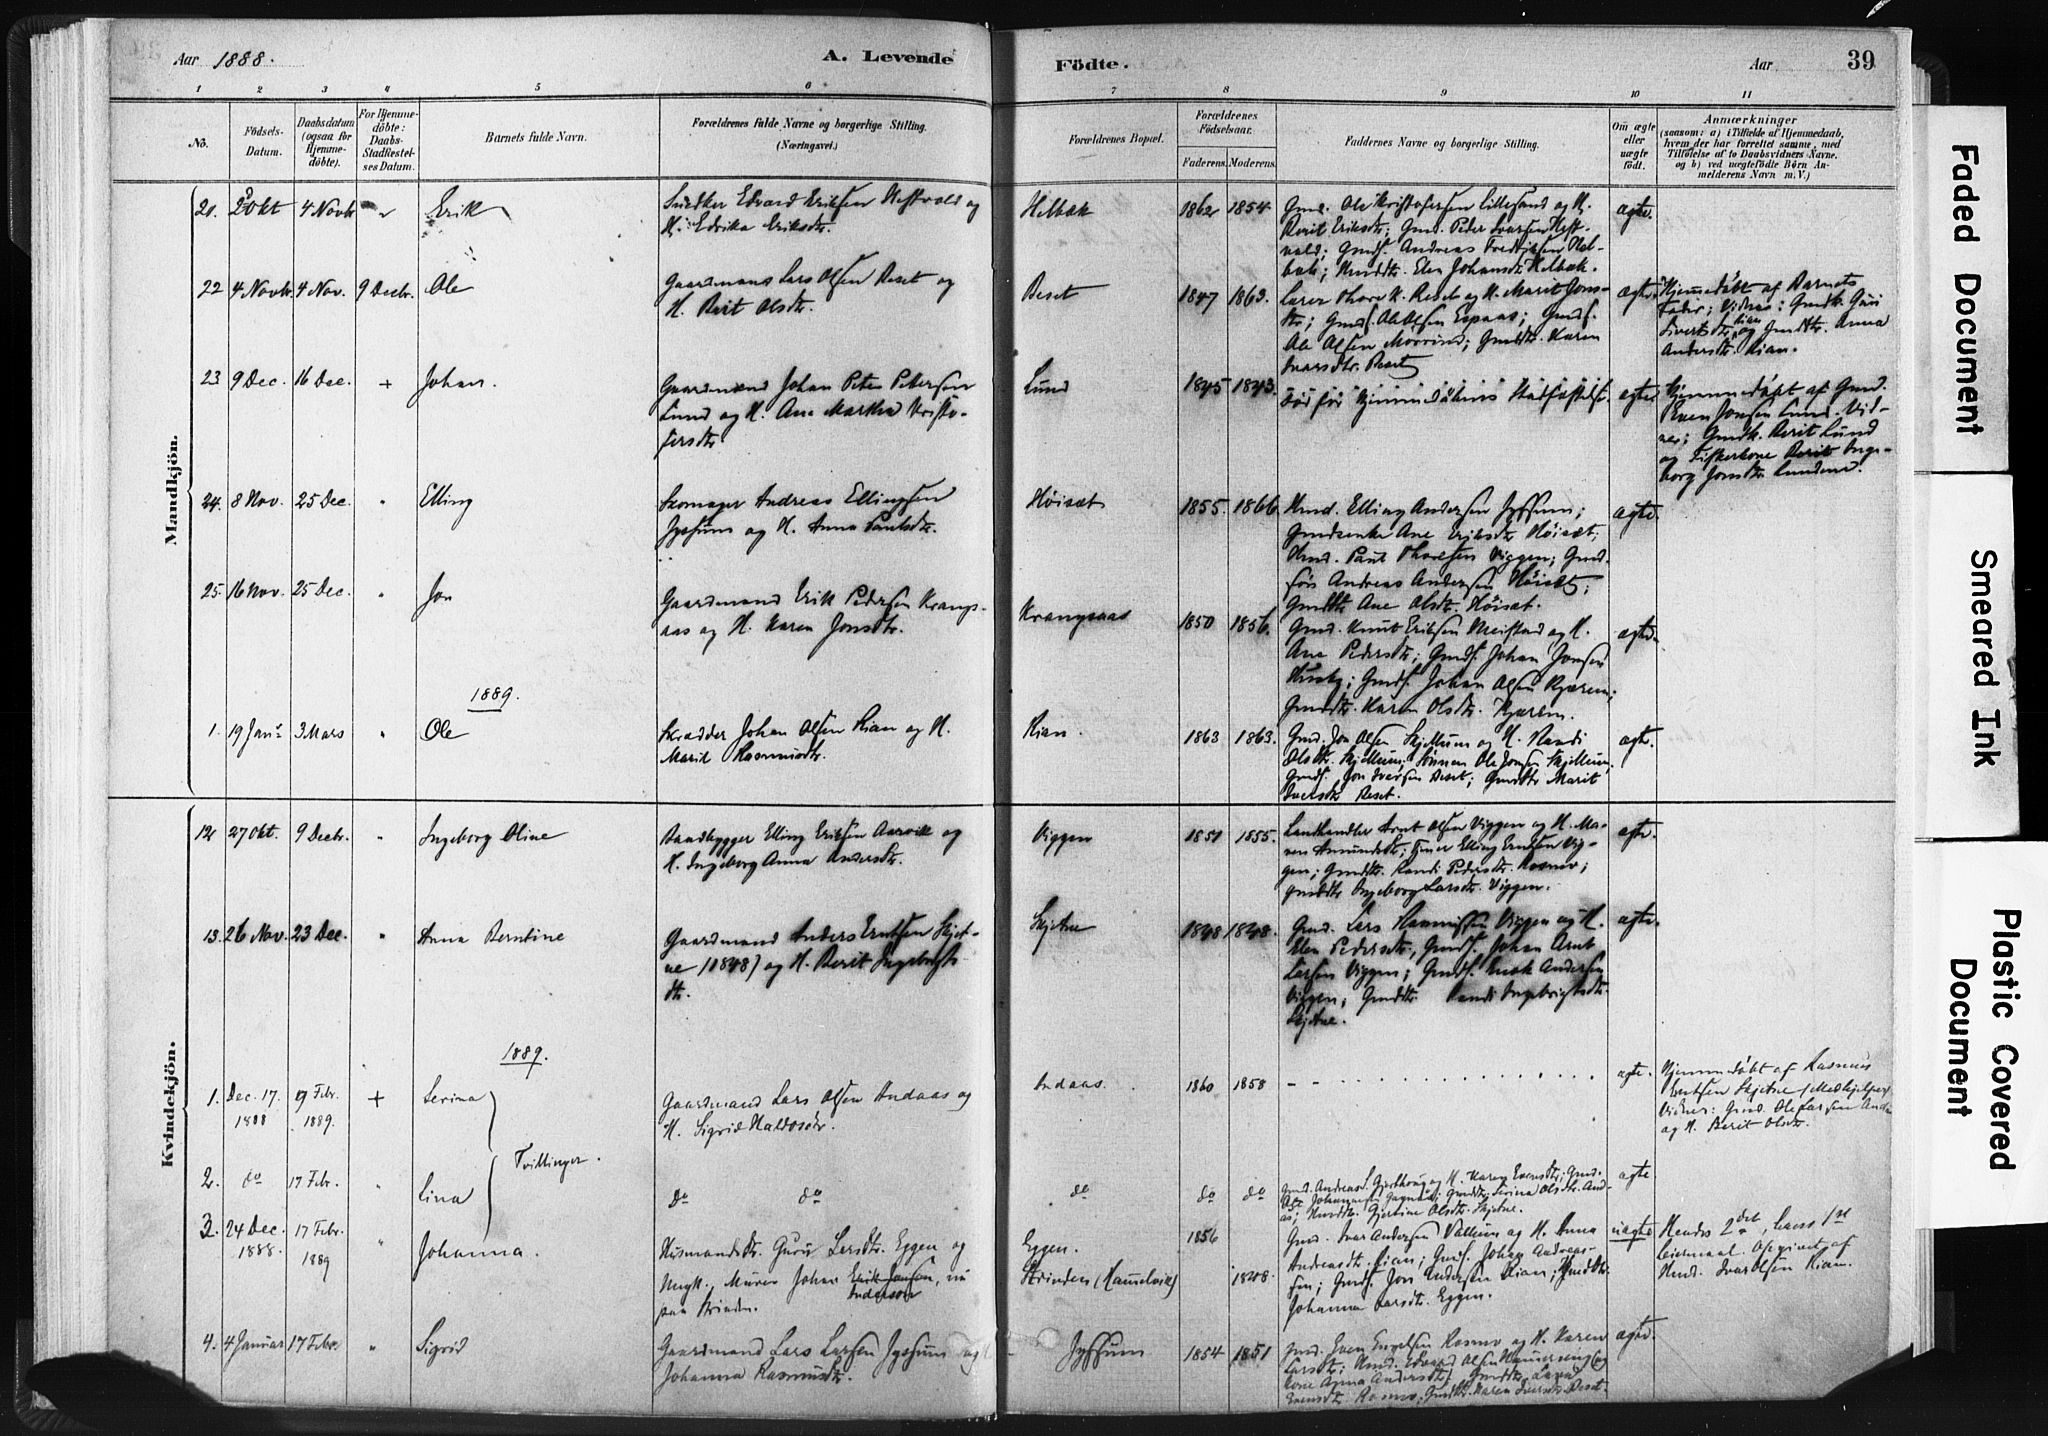 Aar 1888.
A. Levende
Födte.
Aar
39
1 2 3 4 5 6 7 8 9 10 11
No.
Födsels-
Datum.
Daabsdatum
(ogsaa for
Hjemme-
döbte).
For Hjemme-
döbte:
Daabs-
Stadfæstel-
ses Datum.
Barnets fulde Navn.
Forældrenes fulde Navne og borgerlige Stilling.
(Næringsvei.)
Forældrenes Bopæl.
Forældrenes
Födselsaar.
Faderens. Moderens.
Faddernes Navne og borgerlige Stilling.
Om ægte
eller
uægte
födt.
Anmærkninger
(saasom: a) i Tilfælde af Hjemmedaab,
hvem der har forrettet samme, med
Tilföielse af to Daabsvidners Navne,
og b) ved uægtefödte Börn An-
melderens Navn m. V.)
Mandkjön.
21. 20 Okt 4 Novb. " Erik
Snedker Edvard Eriksen Hestvold og
H. Edrika Eriksdtr.
Helbæk 1862 1854.
Gmd. Ole Kristofersen Lillesand og H.
Berit Eriksdtr; Gmd. Peder Ivarsen Hest-
vold; Gmdf. Andreas Fredriksen Hel-
bæk; Hmddtr. Elen Johansdtr Helbæk.
ægte.
22 4 Novb. 4 Nov. 9 Decbr. Ole
Gaardmand Lars Olsen Reset og
H. Berit Olsdtr.
Reset 1847 1863.
Lærer Thore K. Reset og H. Marit Jons-
dtr; Gmdf. Ole Olsen Espaas; Gmdf.
Ole Olsen ; Gmddtr. Karen
Ivarsdtr. Reset
ægte.
Hjemmedöbt af Barnets
Fader; Vidner: Gmdk. Guri
Sivertsdtr. Rian og Gmddtr. Anna
Andersdtr. Rian.
23 9 Dec. 16 Dec. + Johan.
Gaardmand Johan Peter Petersen
Lund og H. Ane Martha Kristo-
fersdtr
Lund 1845 1843.
Död för Hjemmedaabens Stadfæstelse.
ægte.
Hjemmedöbt af Gmd.
Even Jonsen Lund. Vid-
ner; Gmdk. Berit Lund
og Fiskerkone Berit Inge-
borg Jonsdtr Lundend.
24. 8 Nov. 25 Dec. " Elling
Skomager Andreas Ellingsen
Jyssum og H. Anna Paulsdtr.
Höisæt 1855. 1866.
Hmd. Elling Andersen Jyssum;
Gmdenke Ane Eriksdtr Höisæt;
Hmd. Paul Thoresen Viggen; Gmd-
sön Andreas Andersen Höisæt;
Gmddtr Ane Olsdtr. Höisæt.
ægte.
25. 16 Nov. 25 Dec. " Jon
Gaardmand Erik Pedersen Krangs-
aas og H. Karen Jonsdtr.
Krangsaas 1850 1856.
Gmd. Knut Eriksen Meistad og H.
Ane Pedersdtr; Gmdf. Johan Jonsen
Husby; Gmdf. Johan Olsen Kjæren;
Gmddtr. Karen Olsdtr. Kjærem.
ægte.
1889.
1. 19 Janr 3 Mars " Ole
Skrædder Johan Olsen Rian og H.
Marit Rasmusdtr.
Rian. 1863 1863.
Gmd. Jon Olsen Skjellum og H. Randi
Olsdtr. Skjellum; Sönnen Ole Jonsen Skjellum
Gmdf. Jon Iversen Reset; Gmddtr Marit
Iversdtr Reset.
ægte.
Kvindekjön.
12. 27 Okt. 9 Decbr. " Ingeborg Oline
Baadbygger Elling Eriksen Aarvik og
H. Ingeborg Anna Andersdtr.
Viggen 1851 1855.
Landhandler Arnt Olsen Viggen og H. Ma-
ren Amundsdtr; Elling Erntsen Vig-
gen; Gmddtr. Randi Pedersdtr. Rosmo;
Gmddtr Ingeborg Larsdtr. Viggen.
ægte.
13. 26 Nov. 23 Dec. " Anna Berntine
Gaardmand Anders Erntsen Skjet-
ne (1848) og H. Berit Ingebrigts
dtr.
Skjetne 1848 1848.
Gmd. Lars Rasmussen Viggen og H.
Elen Pedersdtr, Gmdf. Johan Arnt
Larsen Viggen; Gmdf. Anders Andersen
Viggen; Gmddtr Randi Ingebrigtsdtr.
Skjetne.
ægte.
1889.
1. Dec. 17. 1888 19 Febr. 1889. + Serina
Tvillinger.
Gaardmand Lars Olsen Andaas og
H. Sigrid Haldosdtr.
Andaas. 1860 1858
ægte.
Hjemmedöbt af Rasmus
Erntsen Skjetne (Medhjelper)
Vidner: Gmd. Ole Larsen Andaas
og H. Berit Olsdtr.
2. do 17 Febr. " Lina
do do do do do
Gmd. Andreas J. Gjerthaug og H. Karen Evensdtr; Gmd.
Ole Johannesen ; Gmddtr. Serina Olsdtr. And-
ås; Hmddtr. Gjertine Olsdtr. Skjetne.
ægte
3. 24 Dec. 1888. 17 Febr. 1889 " Johanna.
Husmandsdtr. Guru Larsdtr. Eggen og
Ungk., Murer Johan Erik Jonsen, nu
Anderson
paa Strinden.
Eggen. 1856
Strinden (Hammelvik) 1848.
Gmd. Ivar Andersen Vollum og H. Anna
Andreasdtr. Rian; Gmdf. Johan Andreas-
sen; Gmdf. Jon Andersen Rian; Gmddtr.
Johanna Larsdtr. Eggen.
uægte
Hendes 2det, hans 1st
Leiermaal. Opgivet af
Hmd. Ivar Olsen Rian.
4. 4 Januar 17 Febr. " Sigrid
Gaardmand Lars Larsen Jyssum og H.
Johanna Rasmusdtr.
Jyssum 1854 1851
Gmd. Even Engelsen Rosmo og H. Karen
Larsdtr; Hmd. Edvard Olsen Hammereng (og
Kone Anna Andersdtr); Gmddtr. Lava
Evensdtr. Rosmo; Gmddtr. Karen Iversdtr Reset.
ægte.
Faded Document
Smeared Ink
Plastic Covered
Document